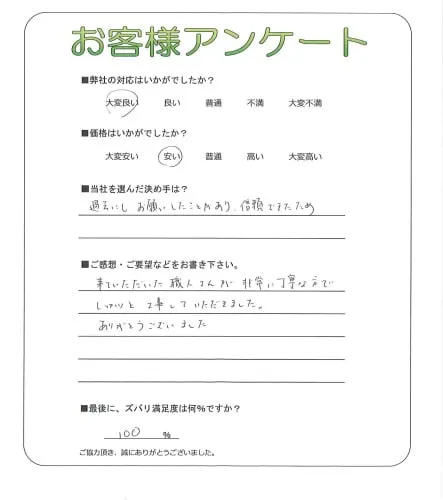 お客様アンケート
■弊社の対応はいかがでしたか？
大変良い 良い 普通 不満 大変不満
■価格はいかがでしたか？
大変安い 安い 普通 高い 大変高い
■当社を選んだ決め手は？
過去にもお願いしたことがあり、信頼できたため
■ご感想・ご要望などをお書き下さい。
来ていただいた職人さんが非常に丁寧な方で
しっかりと工事していただきました。
ありがとうございました
■最後に、ズバリ満足度は何%ですか？
100 %
ご協力頂き、誠にありがとうございました。